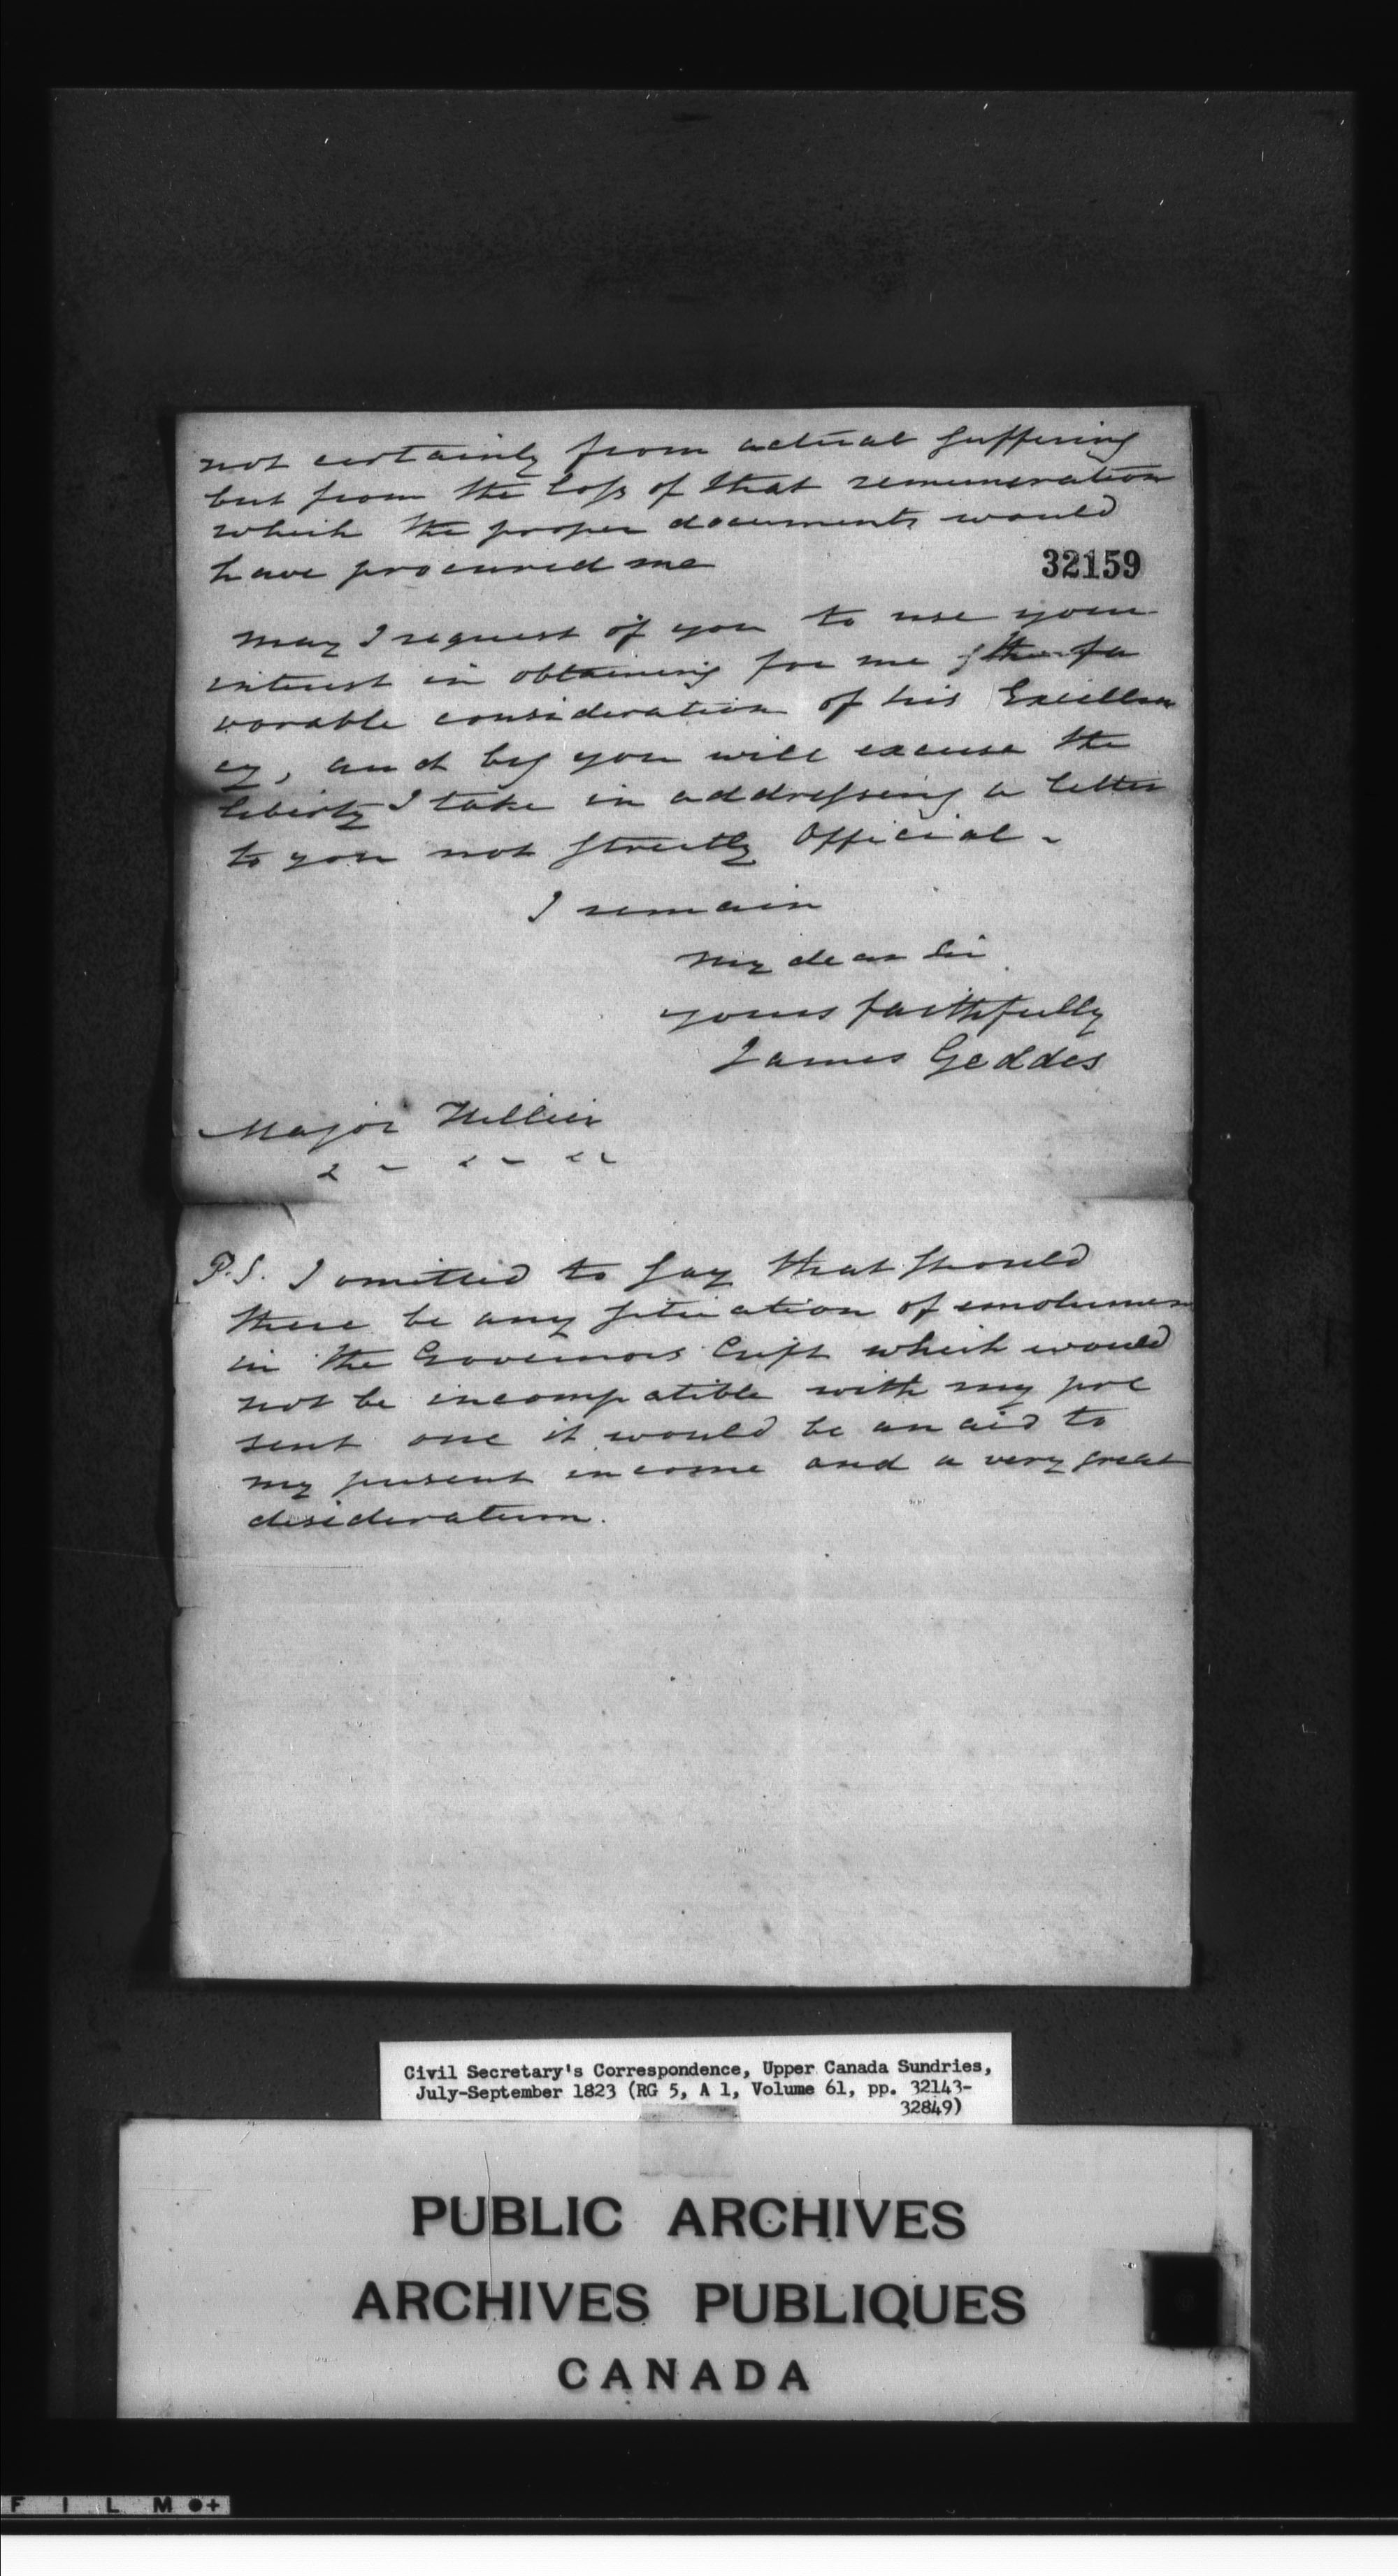 not certainly from actual suffering
but from the loss of that remuneration
which the proper documents would
have procured me
32159
May I request of you to use your
interest in obtaining for me the fa
vorable consideration of his Excellen
cy, and beg you will excuse the
liberty I take in addressing a letter
to you not strictly Official -
I remain
My dear Sir
yours faithfully
James Geddes
Major Hillier
P.S. I omitted to say that should
there be any situation of emolument
in the Governors Gift which would
not be incompatible with my pre
sent one it would be an aid to
my present income and a very great
desideratum.
Civil Secretary's Correspondence, Upper Canada Sundries,
July-September 1823 (RG 5, A 1, Volume 61, pp. 32143-
32849)
PUBLIC ARCHIVES
ARCHIVES PUBLIQUES
CANADA
F I L M